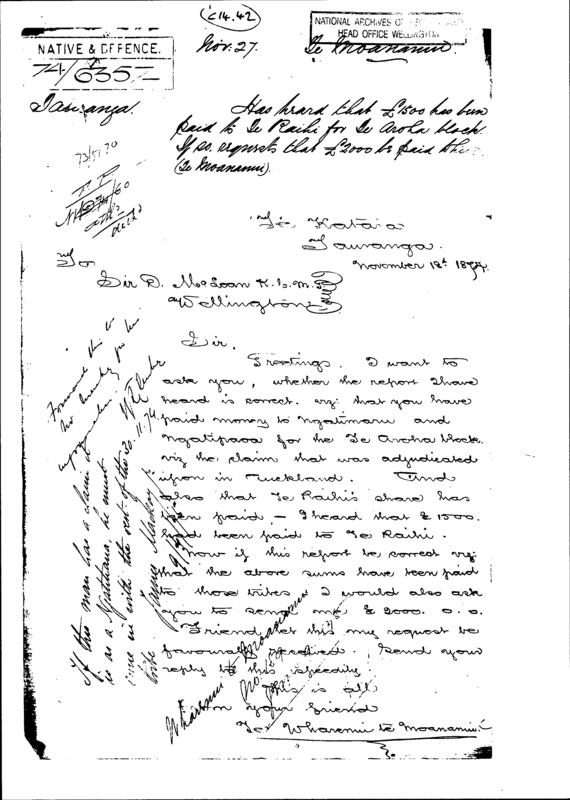 C14.42
NATIONAL ARCHIVES OF
HEAD OFFICE WELLINGTON
NATIVE & DEFENCE.
74/6357
Nov. 27.
Te Moananui
Tauranga.
Has heard that £1500 has been
paid to Te Raihi for Te Aroha block.
If so requests that £2000 be paid
(Te Moananui).
Te Kataia
Tauranga.
November 18th 1874.
To
Sir D. McLean K.C.M.G
Wellington
Sir,
Greetings. I want to
ask you, whether the report I have
heard is correct. viz: that you have
paid money to Ngatimaru and
Ngatipaoa for the Te Aroha block.
viz the claim that was adjudicated
upon in Auckland. And
also that Te Raihi's share has
been paid, – I heard that £1500.
had been paid to Te Raihi.
Now if this report be correct viz:
that the above sums have been paid
to those tribes I would also ask
you to send me £2000. 0. 0.
Friend let this my request be
favourably received. Send your
reply to this speedily
This is all
from your friend
Te Wharenui te Moananui.
Forward this to
If this man has a claim it
is as a Ngatihaua, he must
come in with the rest of the
tribe
James Mackay Jr